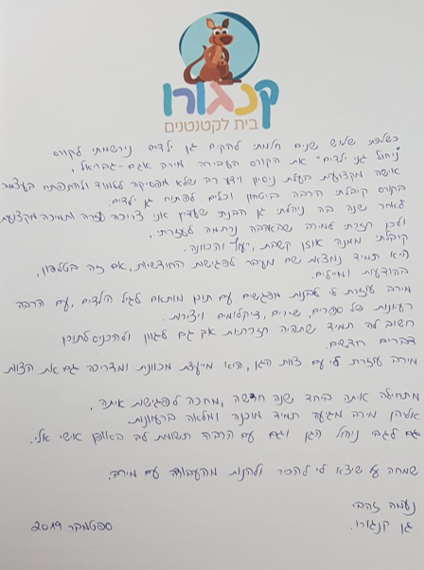 קנגורו
בית לקטנטנים
כשלפני שלוש שנים חלמתי להקים גן ילדים נירשמתי לקורס
"ניהול גני ילדים" את הקורס העבירה מירב אגם-גבריאל,
אישה מקצועית בעלת ניסיון וידע רב שלא מפסיקה ללמוד ולהתפתח בעצמה
בקורס קיבלתי הרבה ביטחון וכלים לפתיחת גן ילדים.
לאחר שנה בה ניהלתי גן הבנתי שעדיין אני צריכה עזרה ותמיכה מקצועית
ולכן חזרתי למירב שבאהבה נרתמה לעזרתי.
קיבלתי ממנה אוזן קשבת, ייעוץ והכוונה.
היא תמיד נמצאת שם מעבר לפגישות החודשיות, אם זה בטלפון,
בהודעות ומיילים.
מירב עוזרת לי לבנות מפגשים עם תוכן מותאם לגיל הילדים, עם הרבה
רעיונות של ספרים, שירים, דיקלומים ויצירות.
חשוב לה תמיד שתהיה חזרתיות אך גם לגוון ולהכניס לתוכן
דברים חדשים.
מירב עוזרת לי עם צוות הגן, היא מייעצת מכוונת ומדריכה גם את הצוות
מתחילה איתה ביחד שנה חדשה, מחכה לפגישות איתה,
אליהן מירב מגיעה תמיד מוכנה ומלאה ברעיונות.
גם לגבי ניהול הגן וגם עם הרבה תשומת לב באופן אישי אלי.
שמחה על שיצא לי להכיר ולהנות מהעבודה עם מירב.
נעמה זהבי
גן קנגורו. ספטמבר 2019